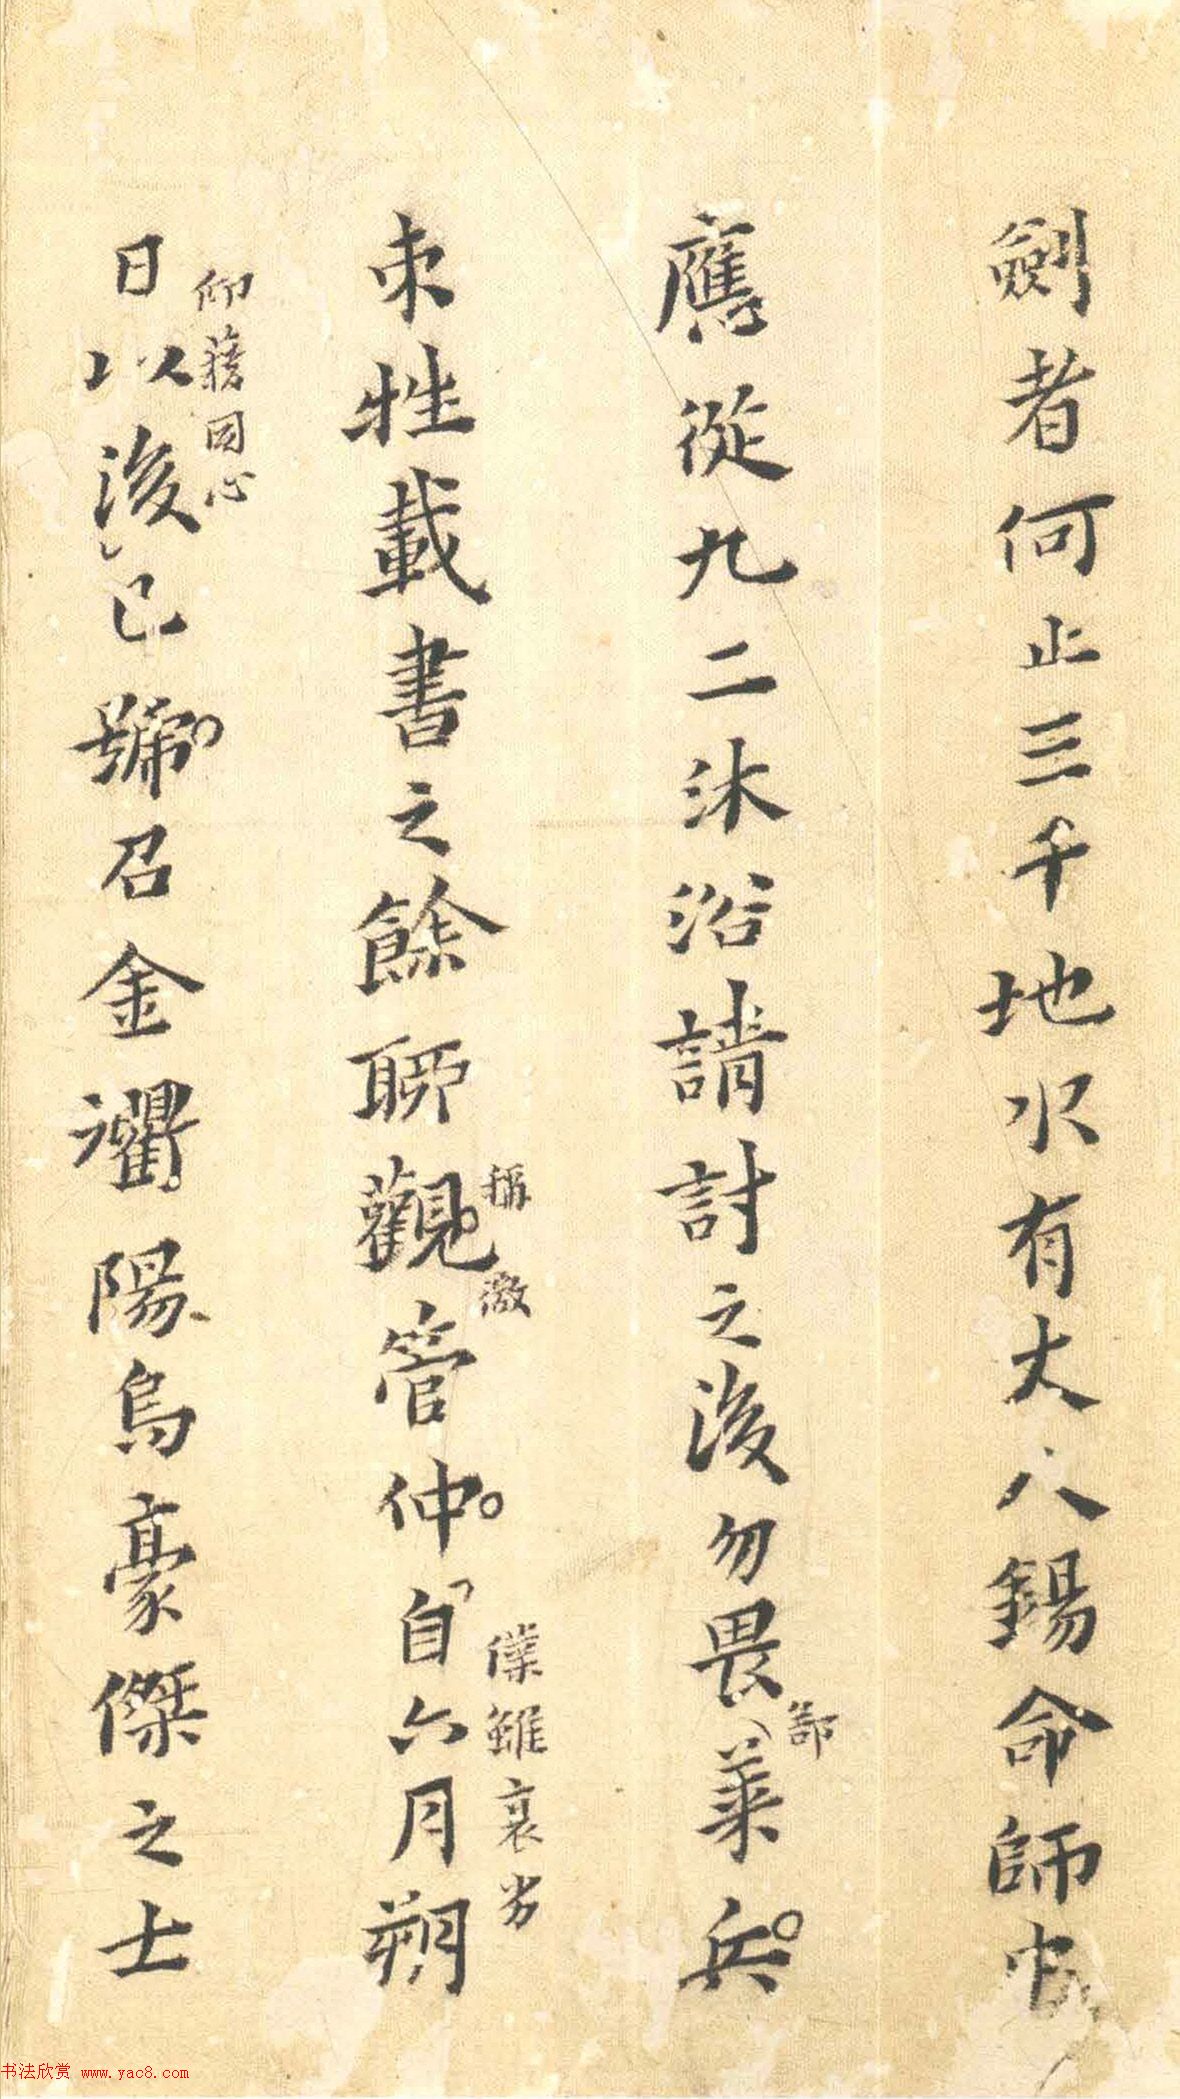 劍者何止三千地水有大人錫命師中
應從九二沐浴請討之後勿畏萊兵
郚
束牲載書之餘聊觀管仲自六月朔
稱激
僕雖衰劣
日以後已號召金衢陽烏豪傑之士
仰藉同心
书法欣赏 www.yac8.com